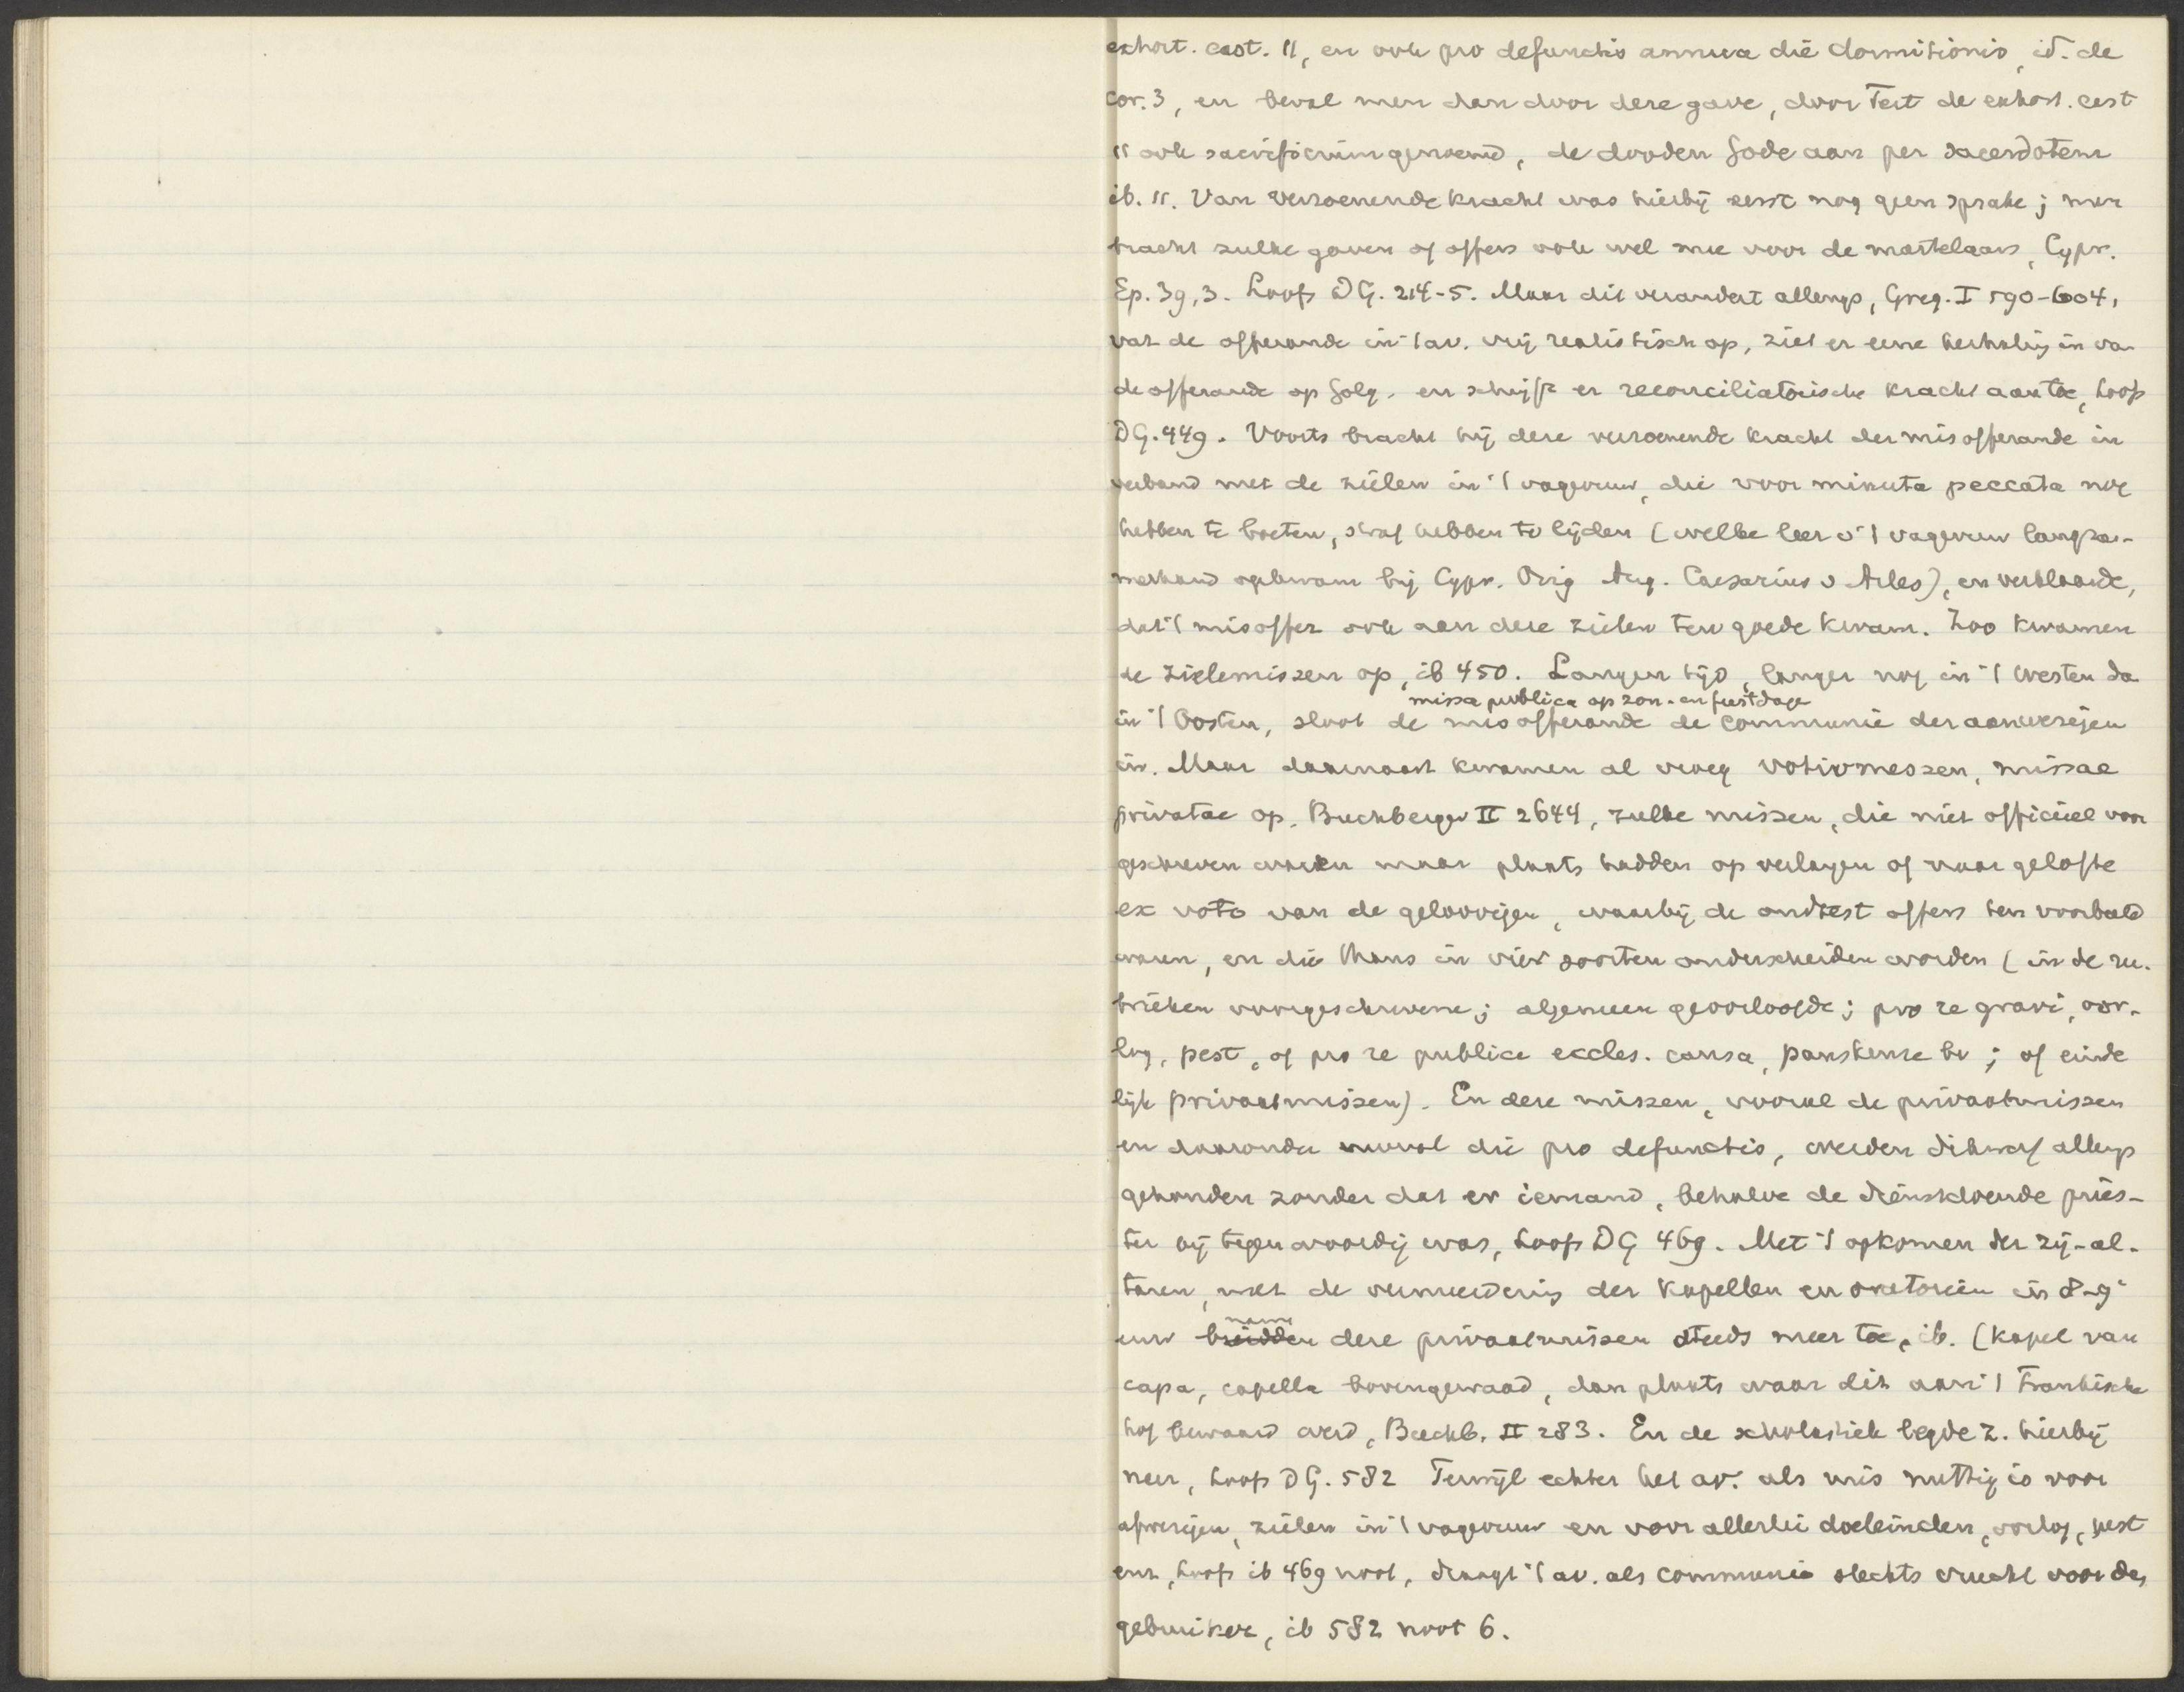 exhort. cast. 11, en ook pro defunctis annua die dormitionis, id. de
cor. 3, en beval men dan door deze gave, door Tert de exhort. cast
11 ook sacrificium genoemd, de dooden Gode aan per sacerdotem
ib. 11. Van verzoenende kracht was hierbij eerst nog geen sprake; men
bracht zulke gaven of offers ook wel mee voor de martelaars, Cypr.
Ep. 39,3. Loofs DG. 214-5. Maar dit verandert allengs, Greg. I 590-604,
vat de offerande in 't av. vrij realistisch op, ziet er eene herhaling in van
de offerande op Golg. en schrijft er reconciliatorische kracht aan toe, Loofs
DG. 449. Voorts bracht hij deze verzoenende kracht der misofferande in
verband met de zielen in 't vagevuur, die voor minuta peccata nog
hebben te boeten, straf hebben te lijden (welke leer v 't vagevuur langza-
merhand opkwam bij Cypr. Orig Aug. Caesarius v Arles), en verklaarde,
dat 't misoffer ook aan deze zielen ten goede kwam. Zoo kwamen
de zielemissen op, ib 450. Langen tijd, langer nog in 't Westen da
missa publica op zon- en feestdage
in 't Oosten, sloot de misofferande de communie der aanwezigen
in. Maar daarnaast kwamen al vroeg votivmessen, missae
privatae op. Buchberger II 2644, zulke missen, die niet officieel voor
geschreven waren maar plaats hadden op verlangen of naar gelofte
ex voto van de geloovigen, waarbij de oudtest offers ten voorbeeld
waren, en die thans in vier soorten onderscheiden worden (in de ru-
brieken voorgeschrevene; algemeen geoorloofde; pro re gravi, oor-
log, pest, of pro re publica eccles. causa, pauskeuze bv; of einde
lijk privaatmissen). En deze missen, vooral de privaatmissen
en daaronder vooral die pro defunctis, werden dikwerf allengs
gehouden zonder dat er iemand, behalve de dienstdoende pries-
ter bij tegenwoordig was, Loofs DG 469. Met 't opkomen der zij-al-
taren, met de vermeerdering der kapellen en oratoriën in 8-9e
namen
eeuw breidden deze privaatmissen steeds meer toe, ib. (kapel van
capa, capella bovengewaad, dan plaats waar dit aan 't Frankische
hof bewaard werd, Buchb. II 283. En de scholastiek legde z. hierbij
neer, Loofs DG. 582 Terwijl echter het av. als mis nuttig is voor
afwezigen, zielen in 't vagevuur en voor allerlei doeleinden, oorlog, pest
enz, Loofs ib 469 noot, draagt 't av. als communie slechts vrucht voor den
gebruiker, ib 582 noot 6.